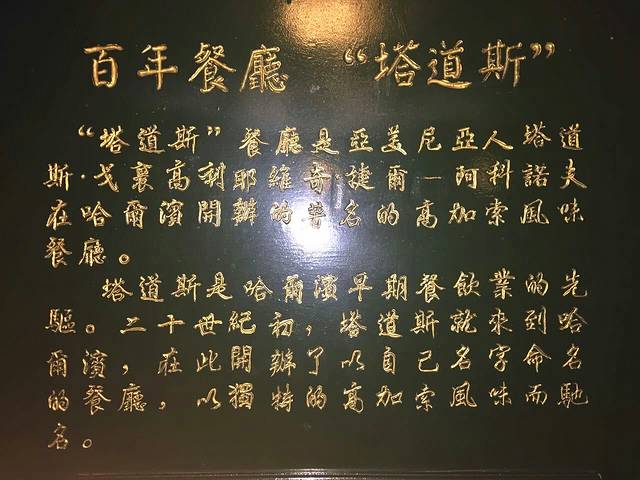 百年餐廳 “塔道斯”
“塔道斯”餐廳是亞美尼亞人塔道
斯·戈裏高利耶維奇·捷爾—阿科諾夫
在哈爾濱開辦的著名的高加索風味
餐廳。
塔道斯是哈爾濱早期餐飲業的先
驅。二十世紀初，塔道斯就來到哈
爾濱，在此開辦了以自己名字命名
的餐廳，以獨特的高加索風味而馳
名。